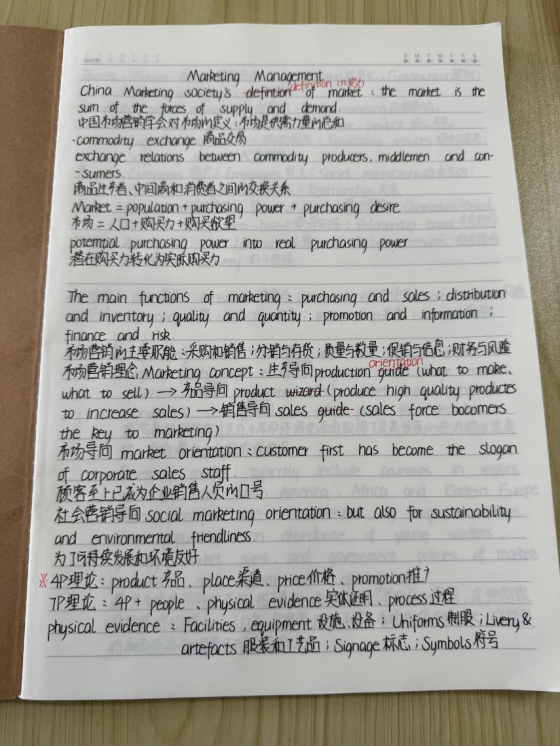 Marketing Management
definition (n.定义)
China Marketing society's defintion of market : the market is the
sum of the forces of supply and demand
中国市场营销学会对市场的定义：市场是供需力量的总和
·commodity exchange 商品交易
exchange relations between commodity producers, middlemen and con-
-sumers
商品生产者、中间商和消费者之间的交换关系
Market = population + purchasing power + purchasing desire
市场 = 人口 + 购买力 + 购买欲望
potemtial purchasing power into real purchasing power
潜在购买力转化为实际购买力
The main functions of marketing : purchasing and sales ; distribution
and inventory ; quality and quantity ; promotion and information ;
finance and risk
市场营销的主要职能：采购和销售；分销与存货；质量与数量；促销与信息；财务与风险
orientation
市场营销理念 Marketing concept : 生产导向 production guide (what to make,
what to sell) → 产品导向 product wizard (produce high quality products
to increase sales) → 销售导向 sales guide (sales force bocomers
the key to marketing)
市场导向 market orientation : customer first has become the slogan
of corporate sales staff
顾客至上已成为企业销售人员的口号
社会营销导向 social marketing orientation : but also for sustainability
and environmental friendliness
为了可持续发展和环境友好
※ 4P理论 : product 产品、place 渠道、price 价格、promotion 推广
7P理论 : 4P + people 、physical evidence 实体证明、process 过程
physical evidence : Facilities , equipment 设施、设备 ; Uniforms 制服 ; Livery &
artefacts 服装和工艺品 ; Signage 标志 ; Symbols 符号